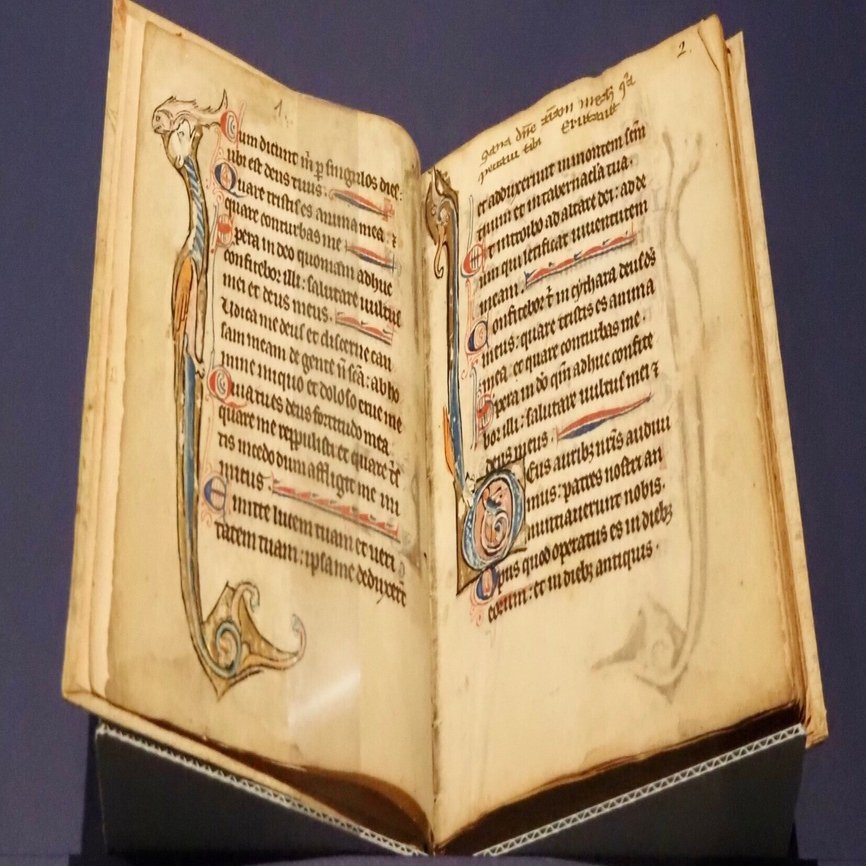 1.
Cum dicunt m̄ p̱ singulos dies:
ubi est deus tuus.
Quare tristis es anima mea: ⁊
quare conturbas me
Spera in deo quoniam adhuc
confitebor illi: salutare uultus
mei et deus meus.
Udica me deus et discerne cau
sam meam de gente n̄ sc̄a: ab ho
mine iniquo et doloso erue me
Quia tu es deus fortitudo mea
quare me reppulisti et quare t̄
tis incedo dum affligit me ini
micus.
Emitte lucem tuam et ueri
tatem tuam: ipsa me deduxert
2.
et adduxerunt in montem sc̄m
tuum et in tabernacla tua.
Et introibo ad altare dei: ad de
um qui letificat iuuentutem
meam.
Confitebor t̄ in cythara deus ds̄
meus: quare tristis es anima
mea. et quare conturbas me.
Spera in dō qm̄ adhuc confite
bor illi: salutare uultus mei ⁊
deus meus.
Deus auribꝫ nr̄is audiui
mus: patres nostri an
nuntiauerunt nobis.
Opus quod operatus es in diebꝫ
eorum: et in diebꝫ antiquis.